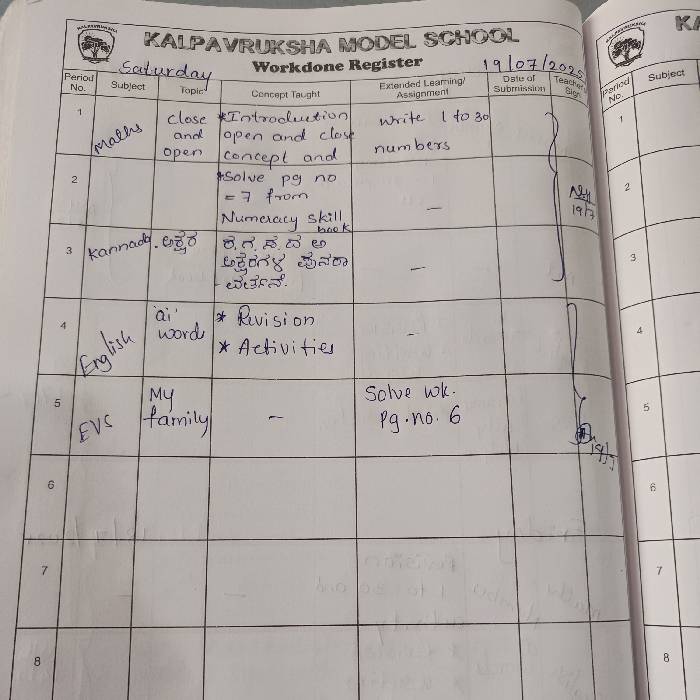 KALPAVRUKSHA
KALPAVRUKSHA MODEL SCHOOL
Workdone Register
Saturday
19/07/2025
Period No.
Subject
Topic
Concept Taught
Extended Learning/
Assignment
Date of
Submission
Teacher's
Sign
1
Maths
close
and
open
*Introduction
open and close
concept and
write 1 to 30
numbers
2
*Solve pg no
= 7 from
Numeracy skill
book
–
19/7
3
Kannada
. ಅಕ್ಷರ
ಕ, ಗ, ಸ, ದ ಅ
ಅಕ್ಷರಗಳ ಪುನರಾ
- ವರ್ತನೆ.
–
4
English
'ai'
words
* Revision
* Activities
-
5
EVS
My
family
–
Solve wk.
Pg. no. 6
19/7
6
7
8
KA
Period
No.
Subject
1
2
3
4
5
6
7
8